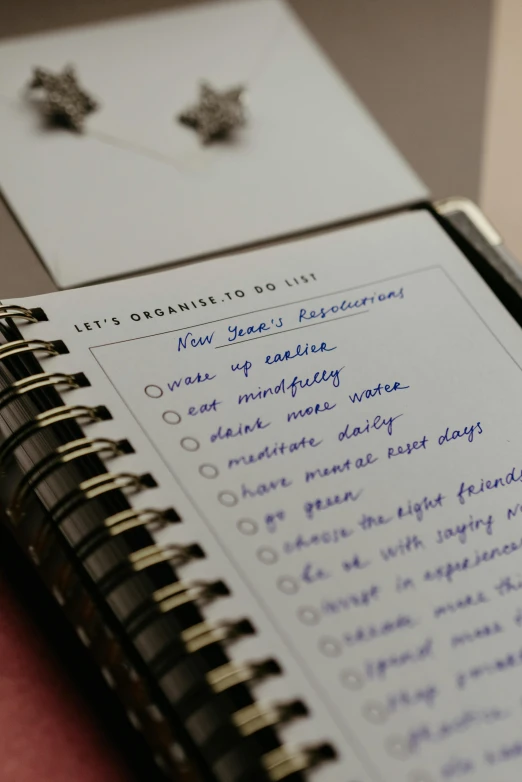 LET'S ORGANISE.TO DO LIST
New Year's Resolutions
wake up earlier
eat mindfully
drink more water
meditate daily
have mental reset days
go green
choose the right friends
be ok with saying no
invest in experiences
create more
spend more
stop